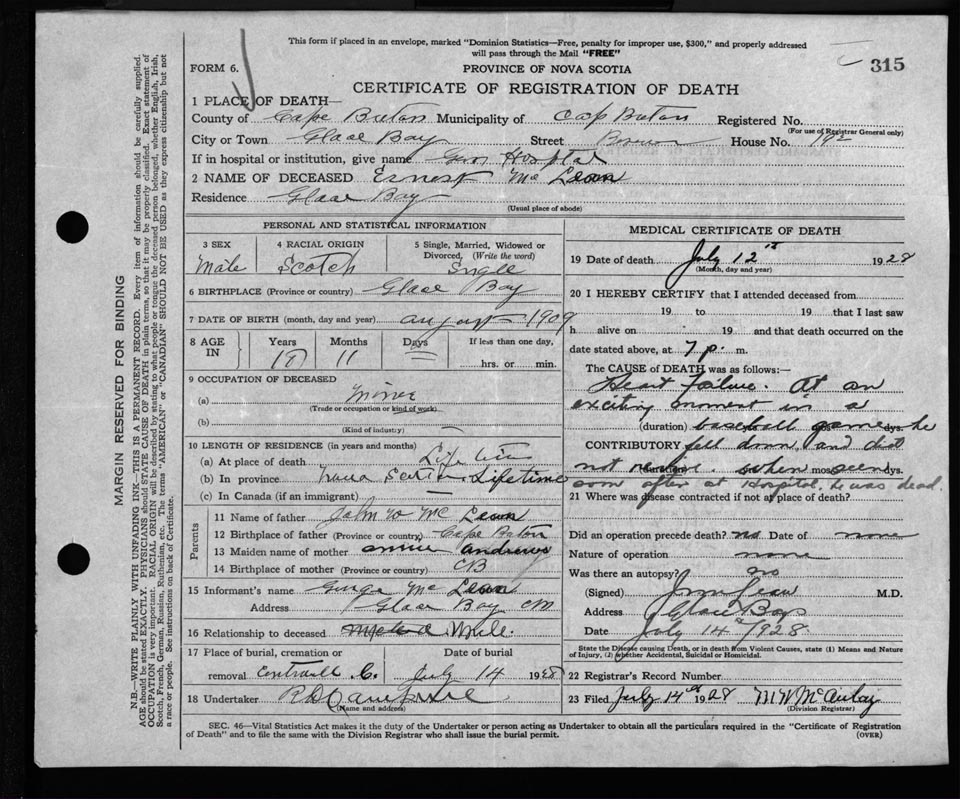 This form if placed in an envelope, marked "Dominion Statistics—Free, penalty for improper use, $300," and properly addressed
will pass through the Mail "FREE"
FORM 6.
PROVINCE OF NOVA SCOTIA
315
CERTIFICATE OF REGISTRATION OF DEATH
1 PLACE OF DEATH—
County of Cape Breton Municipality of Cap Breton Registered No.
(For use of Registrar General only)
City or Town Glace Bay Street House No. 192
If in hospital or institution, give name Gen Hospital
2 NAME OF DECEASED Ernest Mc Lean
Residence Glace Bay
(Usual place of abode)
PERSONAL AND STATISTICAL INFORMATION
3 SEX
Male
4 RACIAL ORIGIN
Scotch
5 Single, Married, Widowed or
Divorced, (Write the word)
Single
6 BIRTHPLACE (Province or country) Glace Bay
7 DATE OF BIRTH (month, day and year) august 1909
8 AGE
IN
Years
18
Months
11
Days
If less than one day,
hrs. or min.
9 OCCUPATION OF DECEASED
(a) Miner
(Trade or occupation or kind of work)
(b)
(Kind of industry)
10 LENGTH OF RESIDENCE (in years and months)
(a) At place of death Life time
(b) In province Nova Scotia Lifetime
(c) In Canada (if an immigrant)
Parents
11 Name of father John W Mc Lean
12 Birthplace of father (Province or country) Cape Breton
13 Maiden name of mother Annie Andrews
14 Birthplace of mother (Province or country) CB
15 Informant's name George Mc Lean
Address Glace Bay
16 Relationship to deceased
17 Place of burial, cremation or
removal
Date of burial
July 14 1928
18 Undertaker
(Name and address)
MEDICAL CERTIFICATE OF DEATH
19 Date of death July 12th 1928
(Month, day and year)
20 I HEREBY CERTIFY that I attended deceased from
19 to 19 that I last saw
h alive on 19 and that death occurred on
the date stated above, at 7 p. m.
The CAUSE of DEATH was as follows:—
Heart Failure. At an
exciting moment in a
(duration) baseball game he dys.
CONTRIBUTORY fell down and did
not (duration) mos. when seen dys.
soon after at Hospital he was dead
21 Where was disease contracted if not at place of death?
Did an operation precede death? no Date of none
Nature of operation none
Was there an autopsy? no
(Signed) M.D.
Address Glace Bay
Date July 14th 1928
State the Disease causing Death, or in death from Violent Causes, state (1) Means and Nature
of Injury, (2) whether Accidental, Suicidal or Homicidal.
22 Registrar's Record Number
23 Filed July 14th 1928 M W McAulay
(Division Registrar)
SEC. 46—Vital Statistics Act makes it the duty of the Undertaker or person acting as Undertaker to obtain all the particulars required in the "Certificate of Registration
of Death" and to file the same with the Division Registrar who shall issue the burial permit.
(OVER)
MARGIN RESERVED FOR BINDING
N.B.—WRITE PLAINLY WITH UNFADING INK—THIS IS A PERMANENT RECORD. Every item of information should be carefully supplied.
AGE should be stated EXACTLY. PHYSICIANS should STATE CAUSE OF DEATH in plain terms, so that it may be properly classified. Exact statement of
OCCUPATION is very important. RACIAL ORIGIN will be described by stating to what people or tongue the deceased person belonged, whether English, Irish,
Scotch, French, German, Russian, Ruthenian, etc. The terms "AMERICAN" or "CANADIAN" SHOULD NOT BE USED as they express citizenship but not
a race or people. See instructions on back of Certificate.